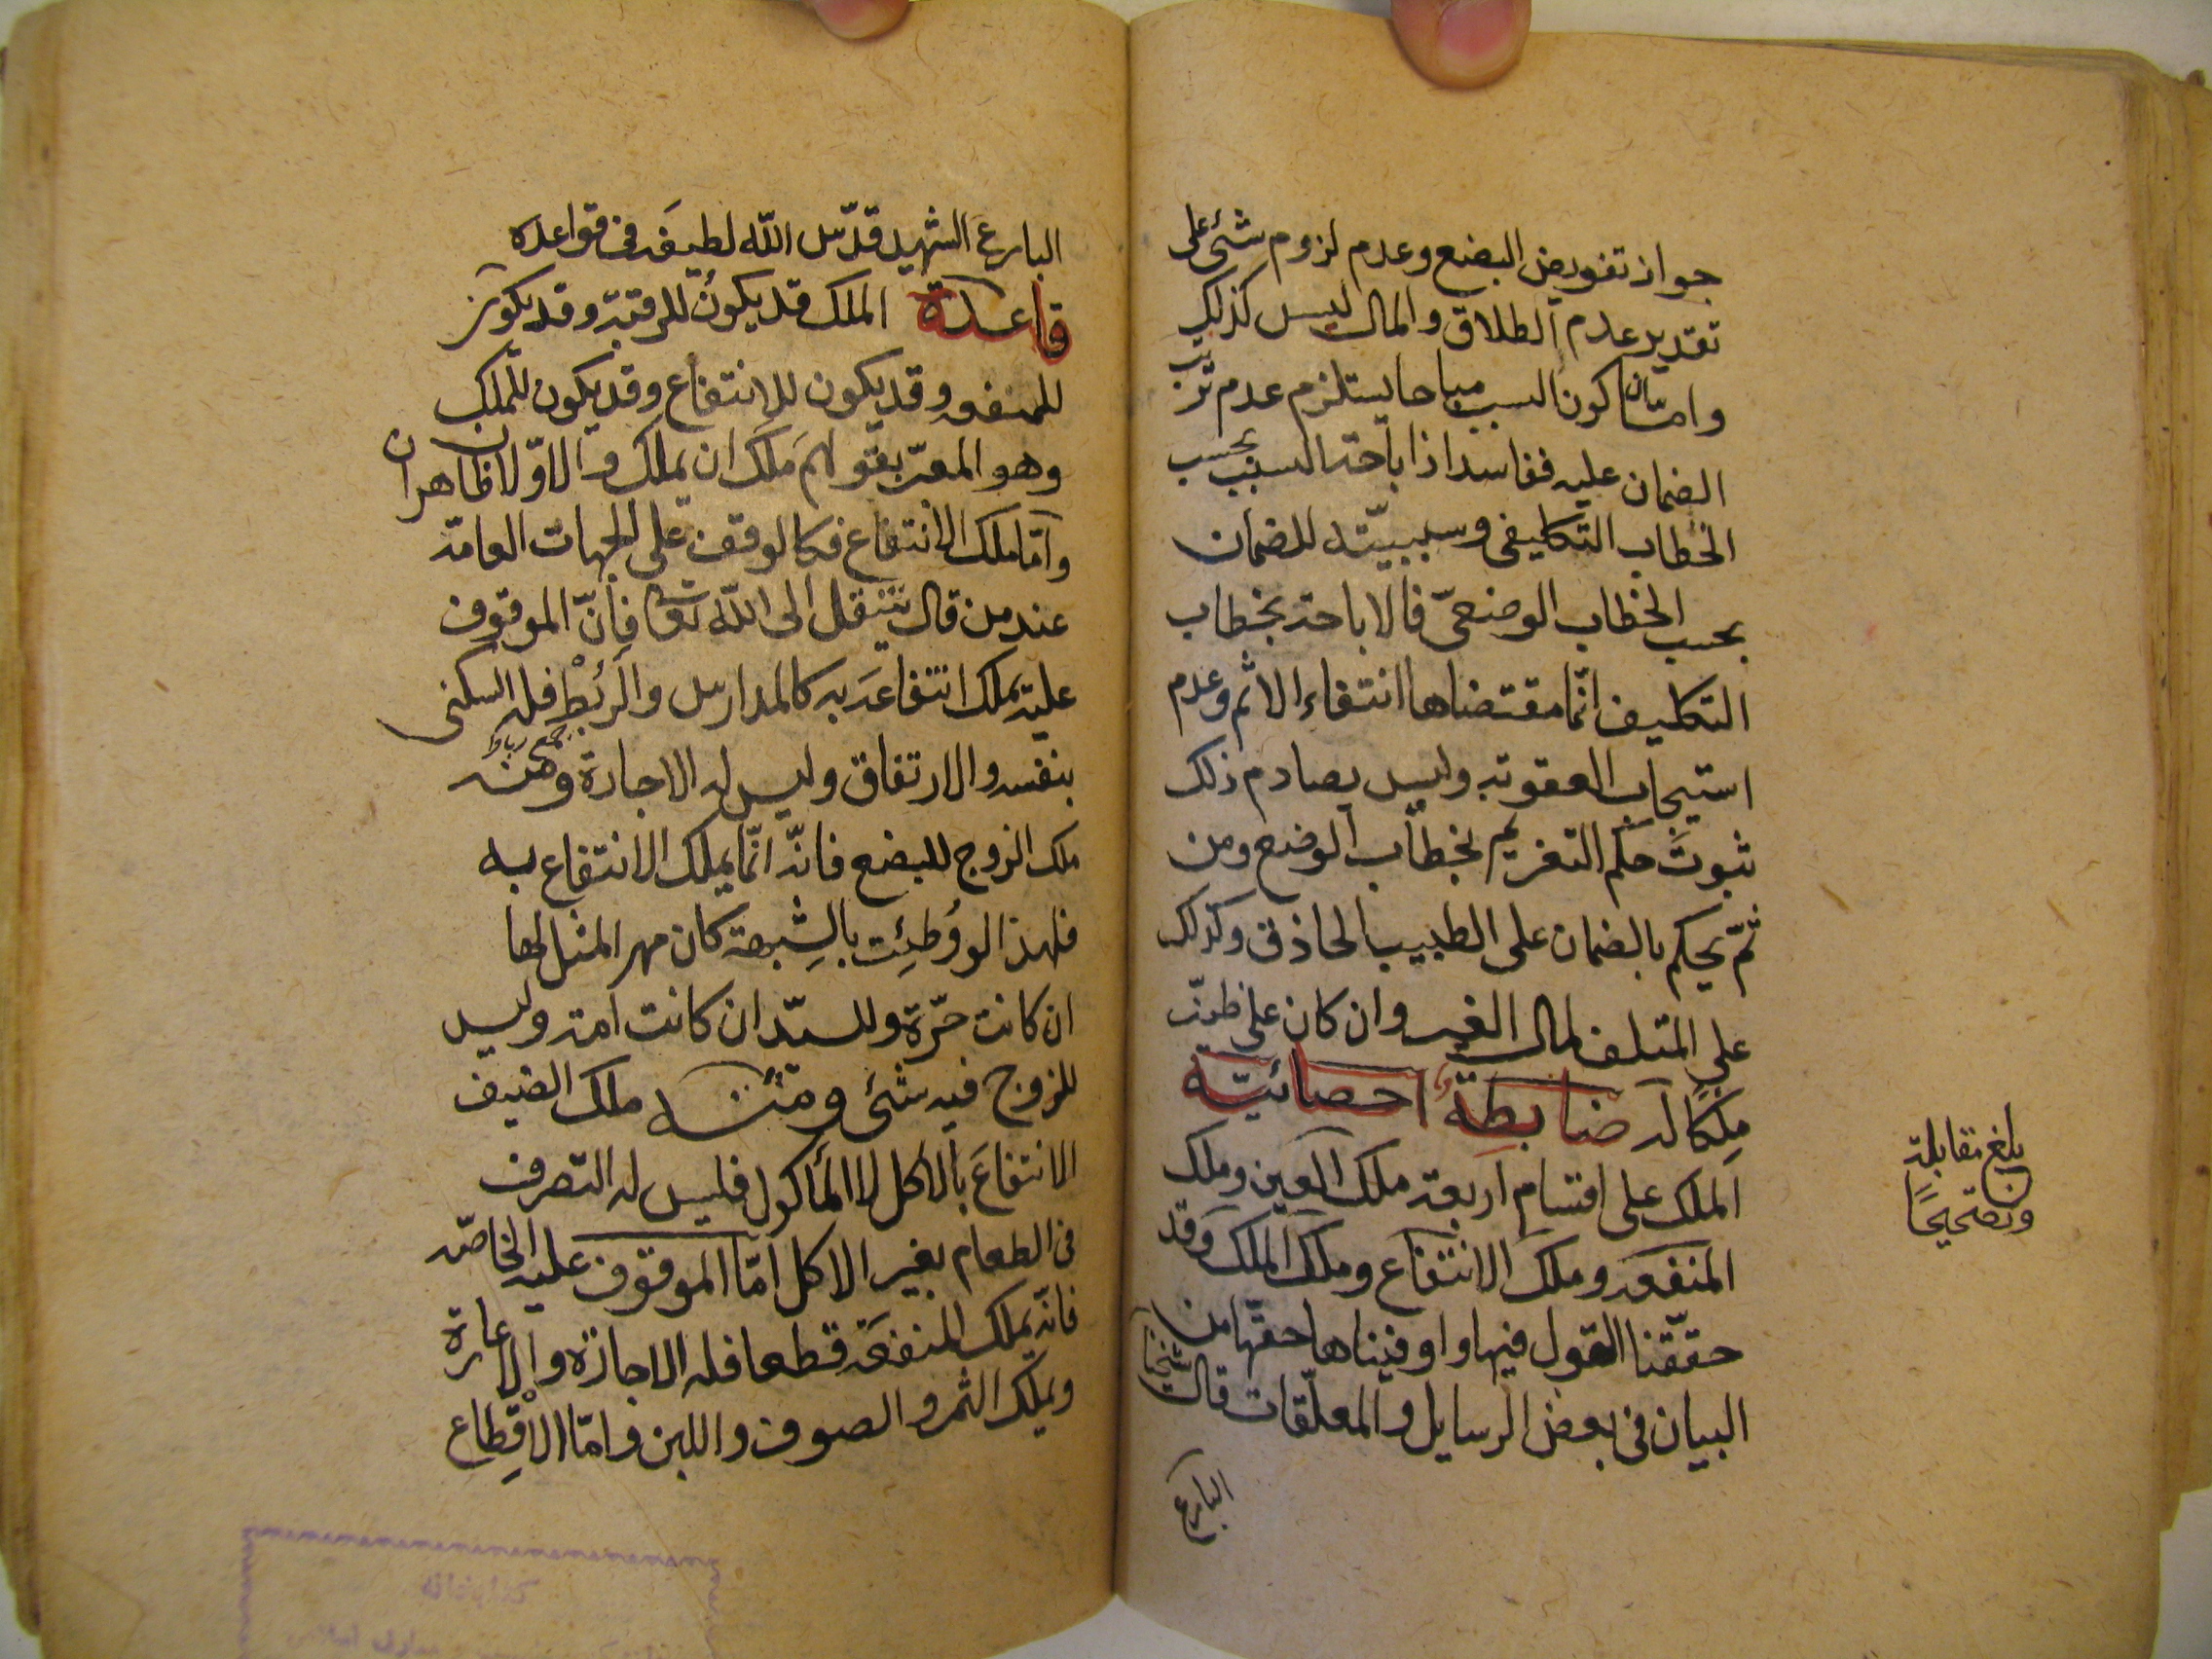 جواز تفويض البضع وعدم لزوم شئ على
تقدير عدم الطلاق والمال ليس كذلك
وامّا ان كون السبب مباحا يستلزم عدم ترتب
الضمان عليه ففاسد اذ اباحة السبب بحسب
الخطاب التكليفى وسببيّته للضمان
بحسب الخطاب الوضعىّ فالاباحة بخطاب
التكليف انّما مقتضاها انتفاء الاثم وعدم
استيجاب العقوبة وليس يصادم ذلك
ثبوتَ حكم التغريم بخطاب الوضع ومن
ثمّ يحكم بالضمان على الطبيب الحاذق وكذلك
على المتلف لمال الغير وان كان على ظنّه
مِلكًا له ضابطةٌ احصائيّة
الملك على اقسام اربعة ملك العين وملك
المنفعة وملك الانتفاع وملك الملك وقد
حقّقنا القول فيها واوفيناها حقّها من
البيان فى بعض الرسايل والمعلّقات قال شيخنا
البارع
بلغ مقابلة
وتصحيحًا
البارع الشهيد قدّس اللّه لطيفَه فى قواعده
قاعدة الملك قد يكونُ للرقبة وقد يكون
للمنفعة وقد يكون للانتفاع وقد يكون للملك
وهو المعبّر بقولهم مَلَكَ ان يملك والاوّلان ظاهران
وامّا ملك الانتفاع فكالوقف على الجهات العامّة
عند من قال ينتقل الى اللّه تعا فانّ الموقوف
عليه يملك انتفاعَه به كالمدارس والرُبُط فله السكنى
جمع رباط
بنفسه والارتفاق وليس له الاجارة ومنه
ملك الزوج للبضع فانّه انّما يملك الانتفاع به
فلهذا لو وُطِئت بالشبهة كان مهر المثل لها
ان كانت حرّة وللسيّد ان كانت امة وليس
للزوج فيه شئ ومنه ملك الضيف
الانتفاعَ بالاكل لا المأكول فليس له التصرف
فى الطعام بغير الاكل امّا الموقوف عليه الخاصّ
فانّه يملك المنفعة قطعا فله الاجارة والاعارة
ويملك الثمر والصوف واللبن وامّا الاقِطاع
كتابخانه